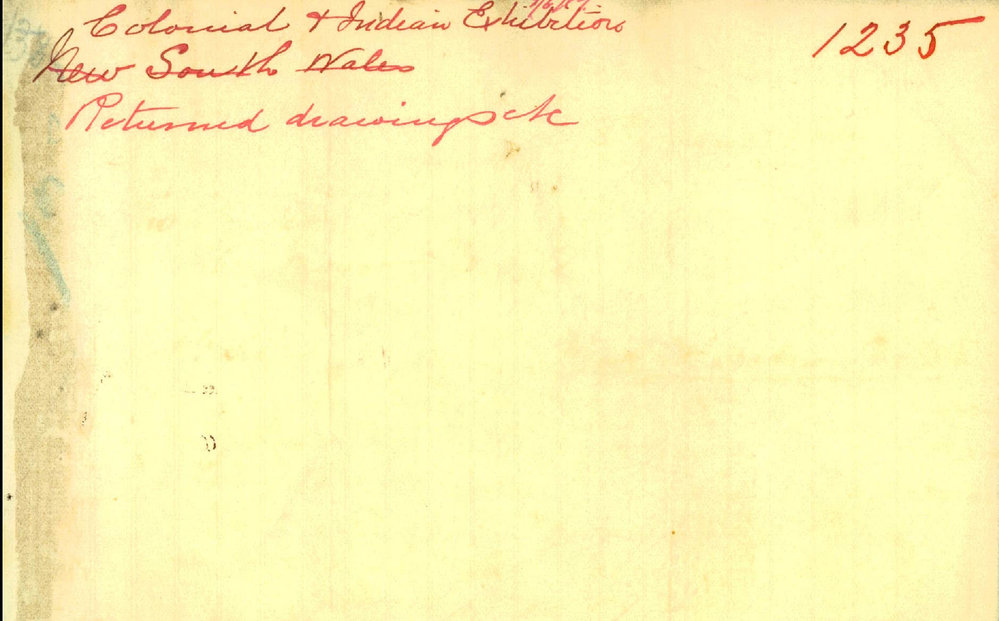 Colonial & Indian Exhibition
1235
New South Wales
Returned drawings &c